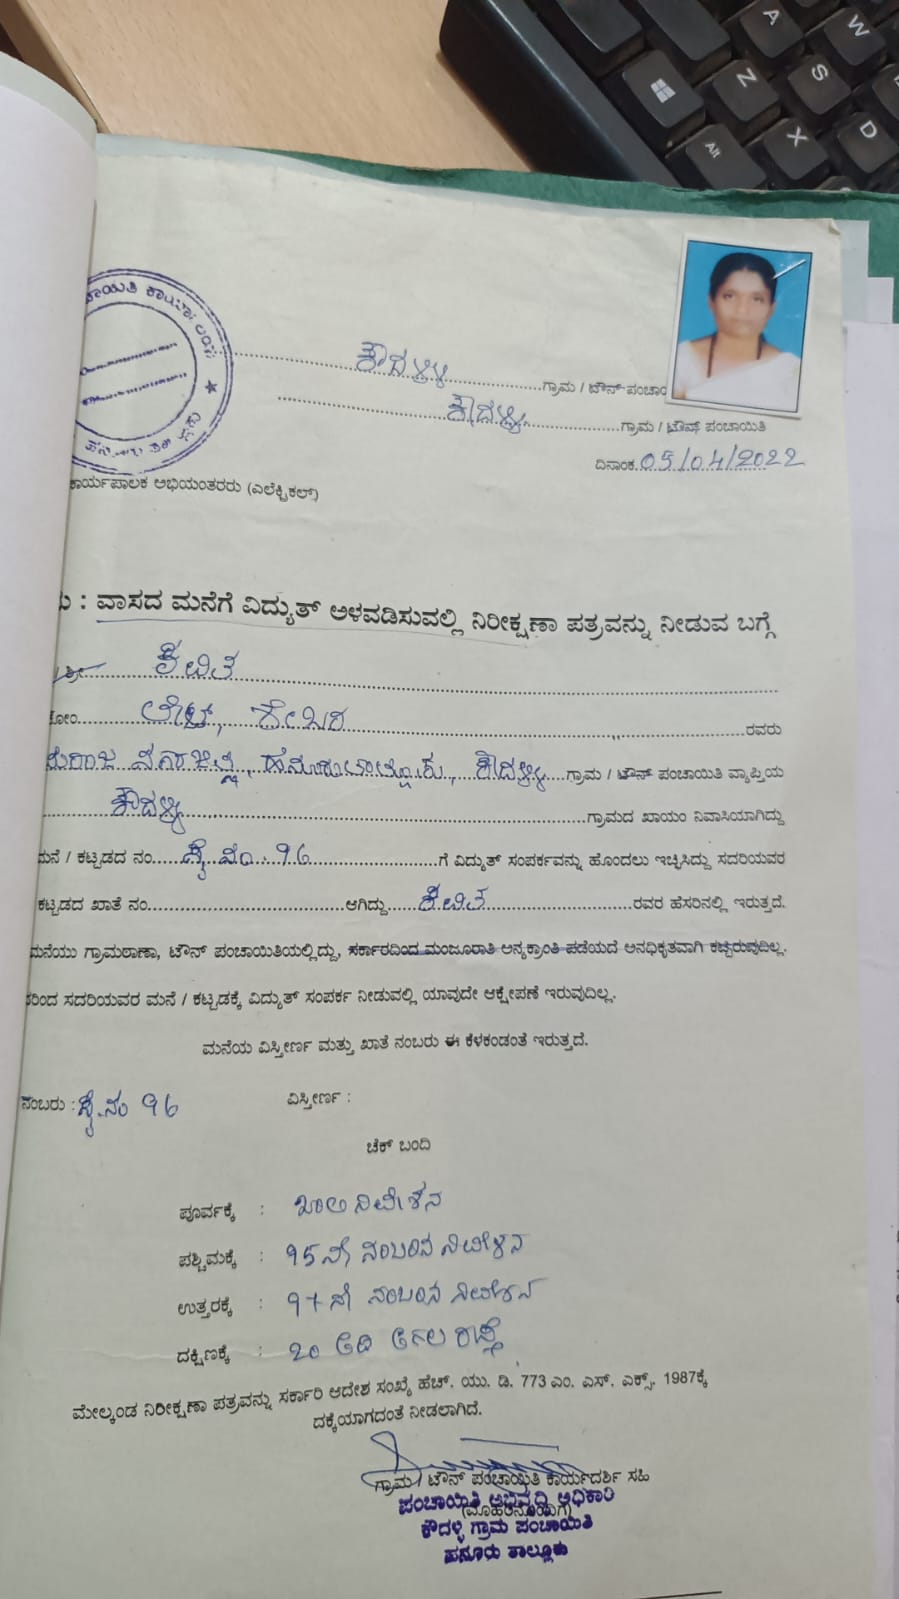 ಕೌದಳ್ಳಿ ಗ್ರಾಮ / ಟೌನ್ ಪಂಚಾ
ಕೌದಳ್ಳಿ ಗ್ರಾಮ / ಟೌನ್ ಪಂಚಾಯಿತಿ
ದಿನಾಂಕ 05/04/2022
ಕಾರ್ಯಪಾಲಕ ಅಭಿಯಂತರರು (ಎಲೆಕ್ಟ್ರಿಕಲ್)
: ವಾಸದ ಮನೆಗೆ ವಿದ್ಯುತ್ ಅಳವಡಿಸುವಲ್ಲಿ ನಿರೀಕ್ಷಣಾ ಪತ್ರವನ್ನು ನೀಡುವ ಬಗ್ಗೆ
ಶ್ರೀ
ಕೋಂ ಲೇಟ್, ರವರು
ಕೌದಳ್ಳಿ ಗ್ರಾಮ / ಟೌನ್ ಪಂಚಾಯಿತಿ ವ್ಯಾಪ್ತಿಯ
ಕೌದಳ್ಳಿ ಗ್ರಾಮದ ಖಾಯಂ ನಿವಾಸಿಯಾಗಿದ್ದು
ಮನೆ / ಕಟ್ಟಡದ ನಂ. ಸೈ ನಂ. 96 ಗೆ ವಿದ್ಯುತ್ ಸಂಪರ್ಕವನ್ನು ಹೊಂದಲು ಇಚ್ಛಿಸಿದ್ದು ಸದರಿಯವರ
ಕಟ್ಟಡದ ಖಾತೆ ನಂ. ಆಗಿದ್ದು ರವರ ಹೆಸರಿನಲ್ಲಿ ಇರುತ್ತದೆ.
ಮನೆಯು ಗ್ರಾಮಠಾಣಾ, ಟೌನ್ ಪಂಚಾಯಿತಿಯಲ್ಲಿದ್ದು, ಸರ್ಕಾರದಿಂದ ಮಂಜೂರಾತಿ ಅನ್ಯಕ್ರಾಂತಿ ಪಡೆಯದೆ ಅನಧಿಕೃತವಾಗಿ ಕಟ್ಟಿರುವುದಿಲ್ಲ.
ಸದರಿಯವರ ಮನೆ / ಕಟ್ಟಡಕ್ಕೆ ವಿದ್ಯುತ್ ಸಂಪರ್ಕ ನೀಡುವಲ್ಲಿ ಯಾವುದೇ ಆಕ್ಷೇಪಣೆ ಇರುವುದಿಲ್ಲ.
ಮನೆಯ ವಿಸ್ತೀರ್ಣ ಮತ್ತು ಖಾತೆ ನಂಬರು ಈ ಕೆಳಕಂಡಂತೆ ಇರುತ್ತದೆ.
ನಂಬರು : ಸೈ.ನಂ 96 ವಿಸ್ತೀರ್ಣ :
ಚೆಕ್ ಬಂದಿ
ಪೂರ್ವಕ್ಕೆ : ಖಾಲಿ ನಿವೇಶನ
ಪಶ್ಚಿಮಕ್ಕೆ : 95 ನೇ ನಂಬರಿನ ನಿವೇಶನ
ಉತ್ತರಕ್ಕೆ : 97 ನೇ ನಂಬರಿನ ನಿವೇಶನ
ದಕ್ಷಿಣಕ್ಕೆ : 20 ಅಡಿ ಅಗಲ ರಸ್ತೆ
ಮೇಲ್ಕಂಡ ನಿರೀಕ್ಷಣಾ ಪತ್ರವನ್ನು ಸರ್ಕಾರಿ ಆದೇಶ ಸಂಖ್ಯೆ ಹೆಚ್. ಯು. ಡಿ. 773 ಎಂ. ಎಸ್. ಎಕ್ಸ್. 1987ಕ್ಕೆ
ದಕ್ಕೆಯಾಗದಂತೆ ನೀಡಲಾಗಿದೆ.
ಗ್ರಾಮ / ಟೌನ್ ಪಂಚಾಯಿತಿ ಕಾರ್ಯದರ್ಶಿ ಸಹಿ
(ಮೊಹರಿನೊಂದಿಗೆ)
ಪಂಚಾಯಿತಿ ಅಭಿವೃದ್ಧಿ ಅಧಿಕಾರಿ
ಕೌದಳ್ಳಿ ಗ್ರಾಮ ಪಂಚಾಯಿತಿ
ಹನೂರು ತಾಲ್ಲೂಕು